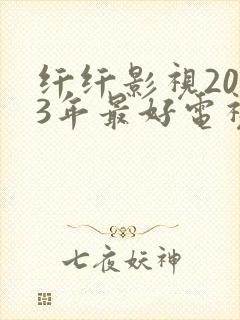 纤纤影視20
3年最好電視
七夜妖神